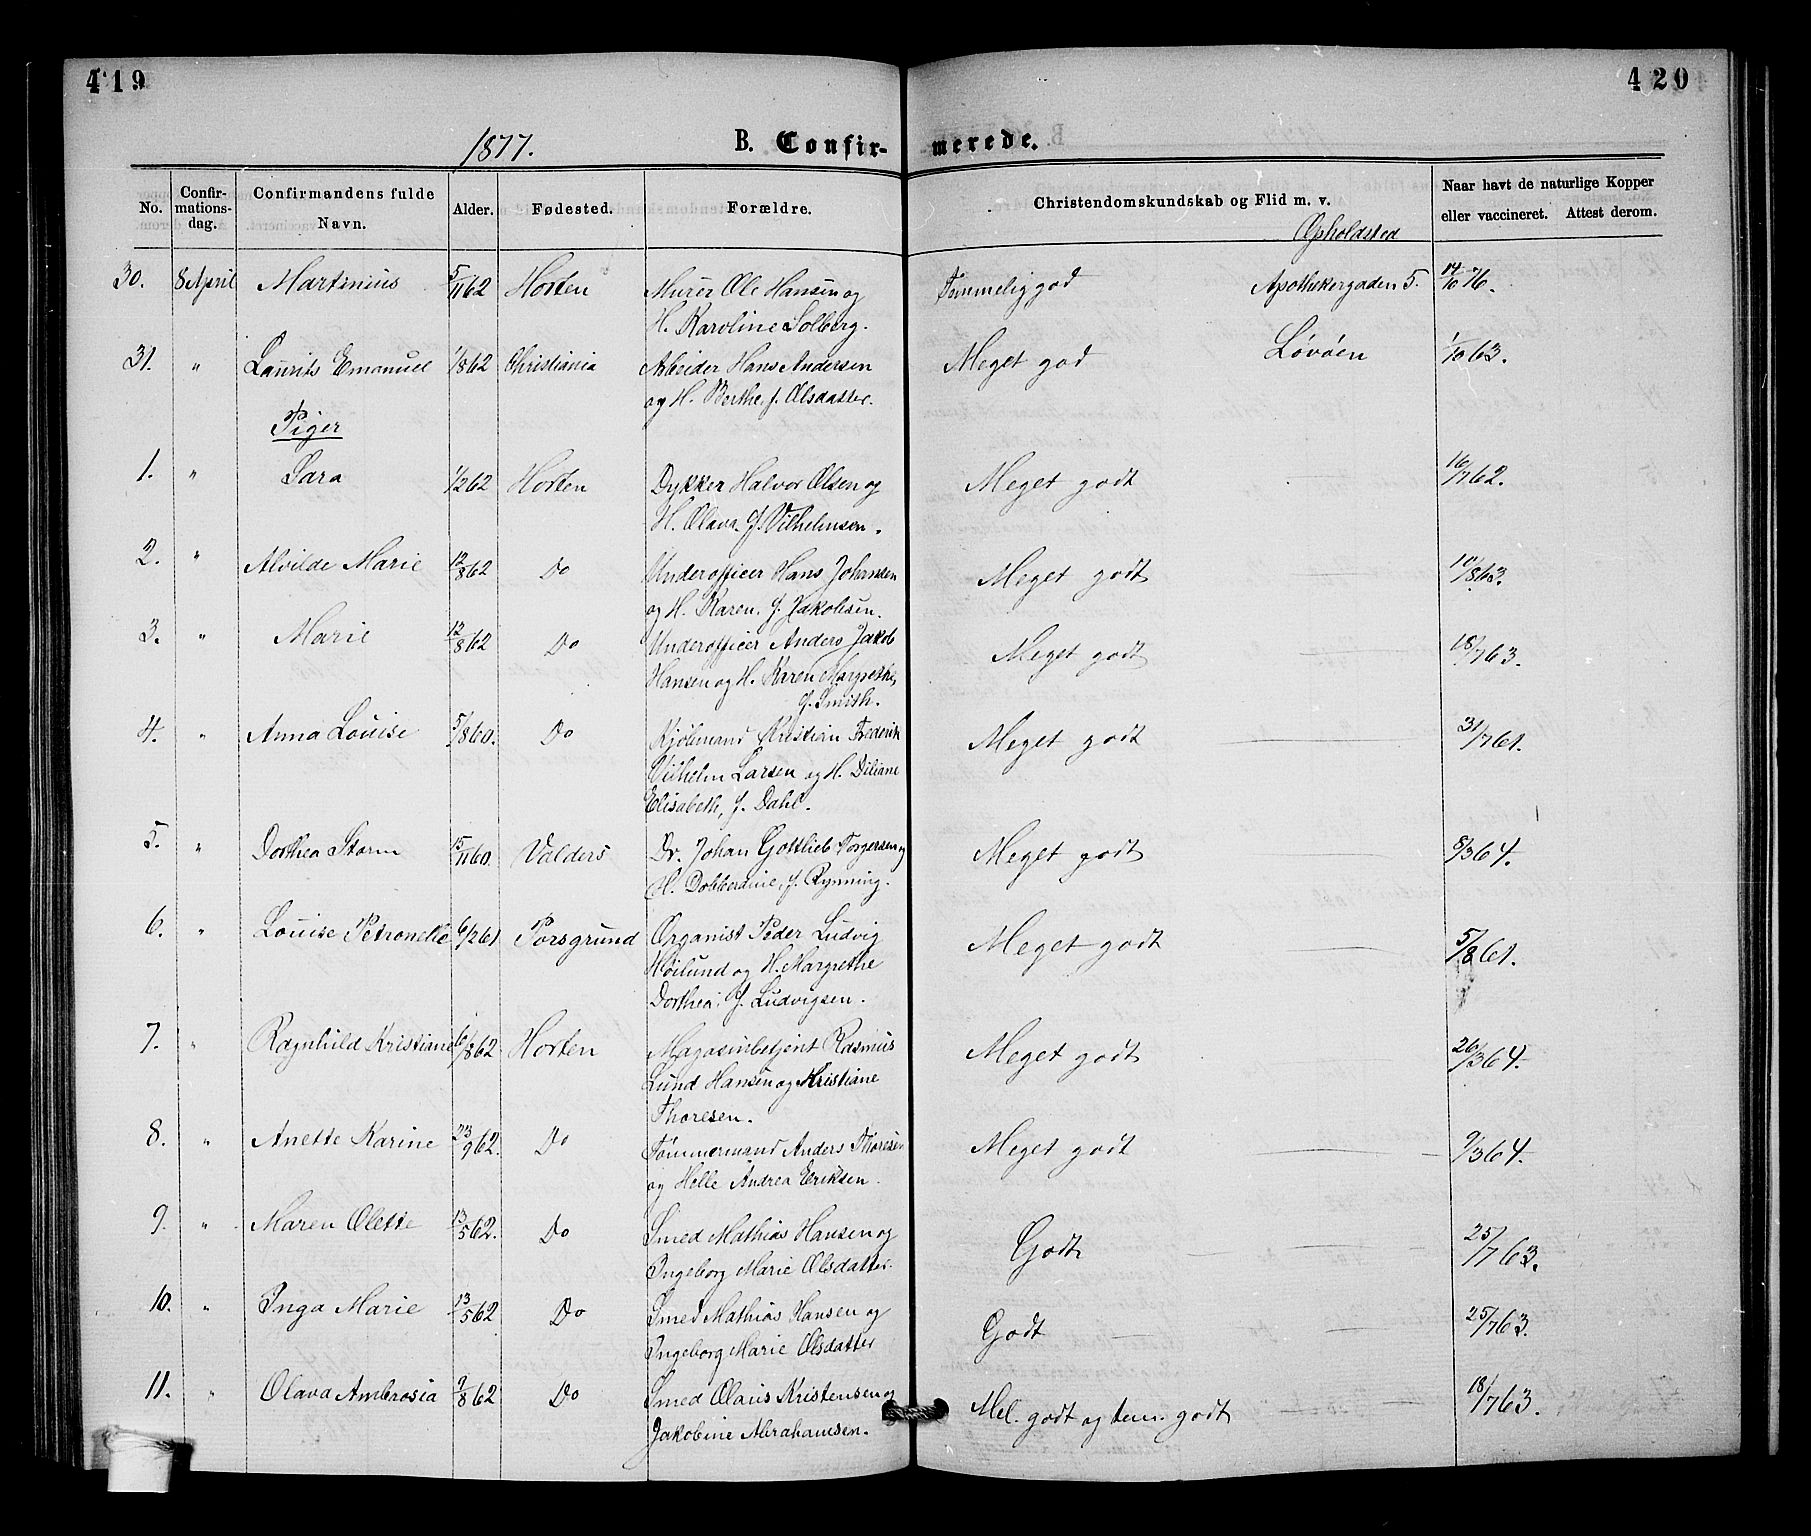 419
420
1877.
B. Confir-
merede.
No.
Confir-
mations-
dag.
Confirmandens fulde
Navn.
Alder.
Fødested.
Forældre.
Christendomskundskab og Flid m. v.
Opholdsted
Naar havt de naturlige Kopper
eller vaccineret. Attest derom.
30. 8 April Martinius 5/11 62 Horten Murer Ole Hansen og Temmelig god Apothekergaden 5. 14/10 76.
H. Karoline Solberg.
31. " Laurits Emanuel 1/8 62 Christiania Arbeider Hans Andersen Meget god Løvøen 1/10 63.
og H. Berthe, f. Olsdatter.
Piger
1. " Sara 1/2 62 Horten Dykker Halvor Olsen og Meget godt 16/7 62.
H. Olava f. Vilhelmsen.
2. " Alvilde Marie 12/8 62 Do Underofficer Hans Johnsen Meget godt 10/8 63.
og H. Karen, f. Jakobsen.
3. " Marie 12/8 62 Do Underofficer Anders Jakob Meget godt 18/7 63.
Hansen og H. Karen Margrethe,
f. Smith.
4. " Anna Louise 5/8 60. Do Kjølmand Kristian Frederik Meget godt 31/7 61.
Vilhelm Larsen og H. Diliane
Elisabeth, f. Dahl.
5. " Dorthea Storm 15/11 60. Valders Dr. Johan Gottlieb Torgersen og Meget godt 8/3 64.
H. Dobberdine, f. Rynning.
6. " Louise Petronelle 6/2 61 Porsgrund Organist Peder Ludvig Meget godt 5/8 61.
Høilund og H. Margrethe
Dorthea, f. Ludvigsen.
7. " Ragnhild Kristiane 6/8 62 Horten Magasinbetjent Rasmus Meget godt 26/3 64.
Lund Hansen og Kristiane
Thoresen.
8. " Anette Karine 23/9 62. Do Tømmermand Anders Thoresen Meget godt 9/3 64.
og Helle Andrea Eriksen.
9. " Maren Olette 13/5 62. Do Smed Mathias Hansen og Godt 25/7 63.
Ingeborg Marie Olsdatter.
10. " Inga Marie 13/5 62 Do Smed Mathias Hansen og Godt 25/7 63.
Ingeborg Marie Olsdatter
11. " Olava Ambrosia 9/8 62 Do Smed Olaus Kristensen og Mel. godt og tem. godt 18/7 63.
Jakobine Abrahamsen.